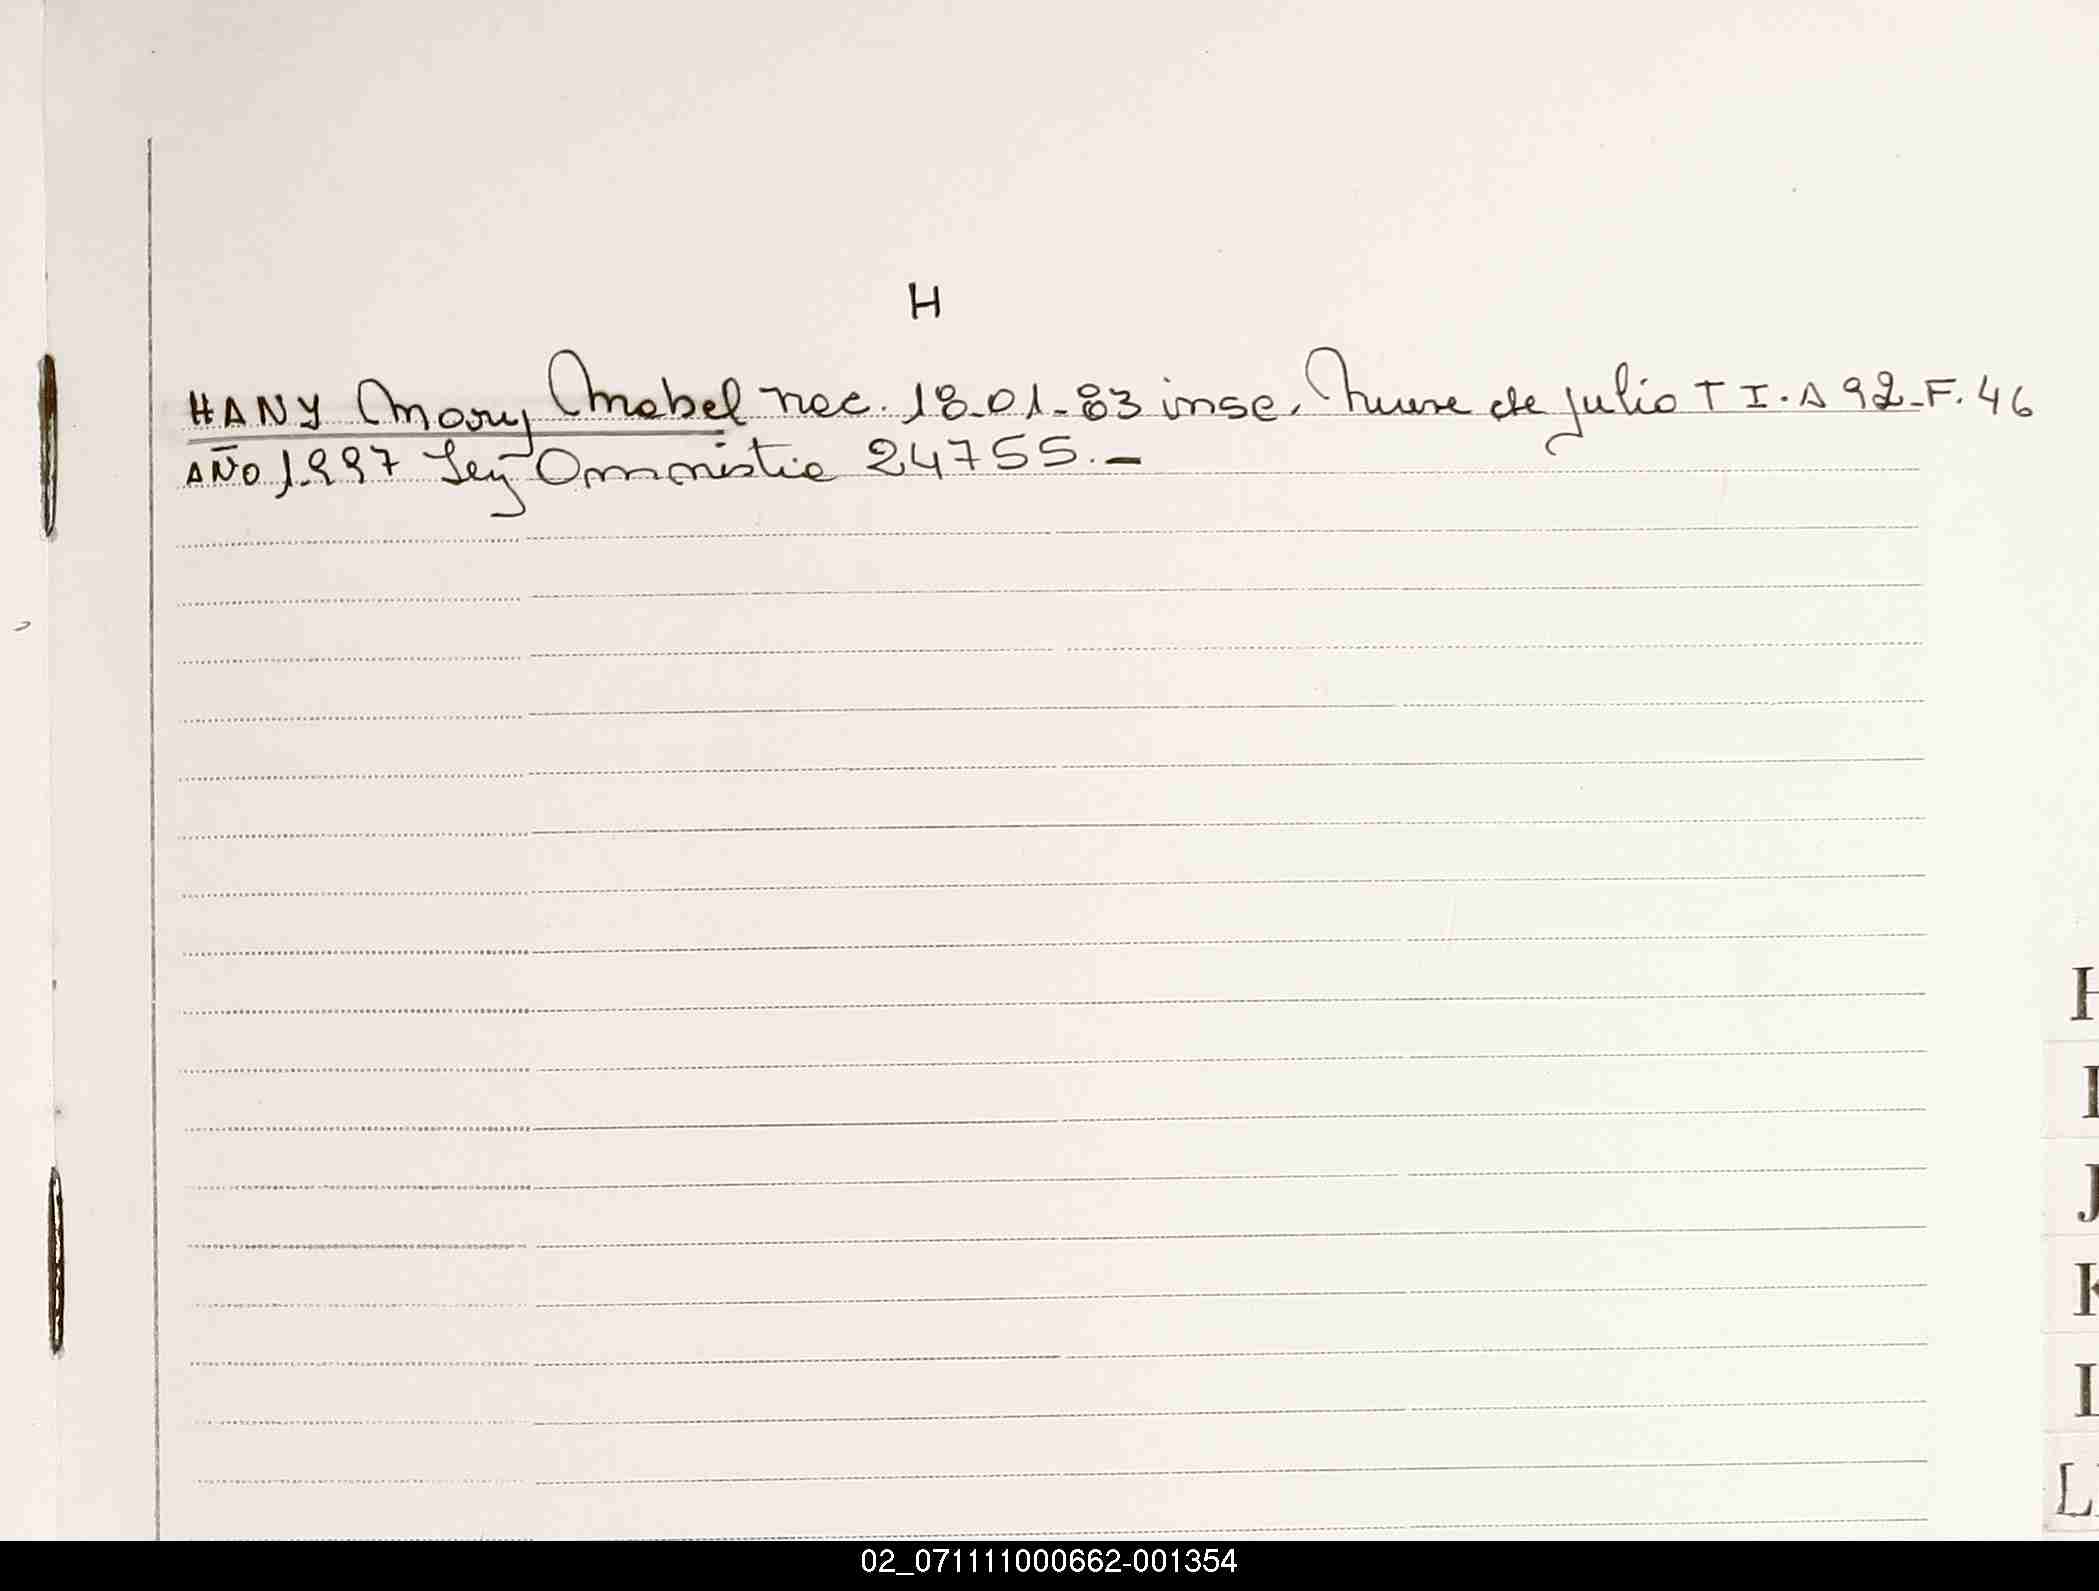 H
HANY Mary Mabel nac. 18-01-83 insc. Nueve de julio T I. A 92-F. 46
AÑO 1.997 Ley Amnistia 24755.-
H
I
J
K
L
LL
02_071111000662-001354